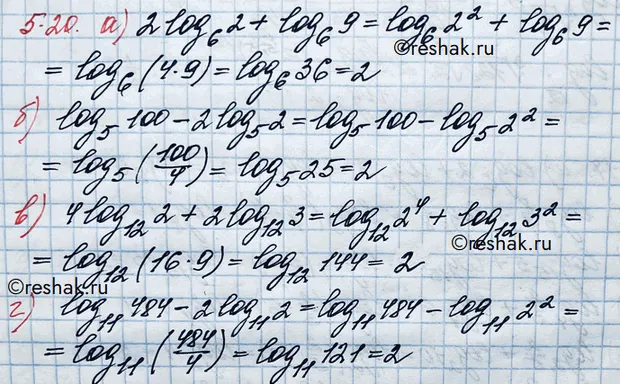 5.20. а) 2 log₆ 2 + log₆ 9 = log₆ 2² + log₆ 9 =
©reshak.ru
= log₆ (4·9) = log₆ 36 = 2
©reshak.ru
б) log₅ 100 - 2 log₅ 2 = log₅ 100 - log₅ 2² =
= log₅ (100/4) = log₅ 25 = 2
в) 4 log₁₂ 2 + 2 log₁₂ 3 = log₁₂ 2⁴ + log₁₂ 3² =
©reshak.ru
= log₁₂ (16·9) = log₁₂ 144 = 2
©reshak.ru
г) log₁₁ 484 - 2 log₁₁ 2 = log₁₁ 484 - log₁₁ 2² =
= log₁₁ (484/4) = log₁₁ 121 = 2
©reshak.ru